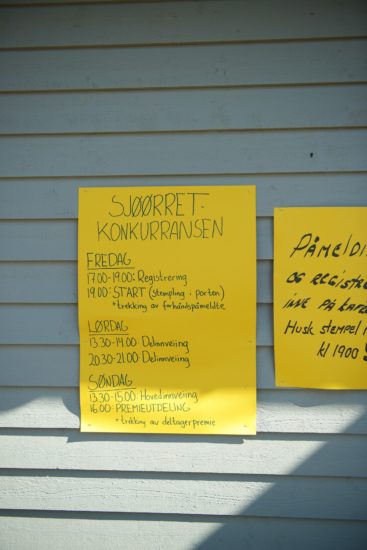 SJØØRRET-
KONKURRANSEN
FREDAG
17.00-19.00: Registrering
19.00: START (stempling i porten)
*trekking av forhåndspåmeldte
LØRDAG
13.30-14.00 Delinnveiing
20.30-21.00: Delinnveiing
SØNDAG
13.30-15.00 Hovedinnveiing
16.00 PREMIEUTDELING
*trekking av deltagerpremie
PÅMELDI
OG REGISTRE
INNE PÅ
Husk stempel
kl 1900